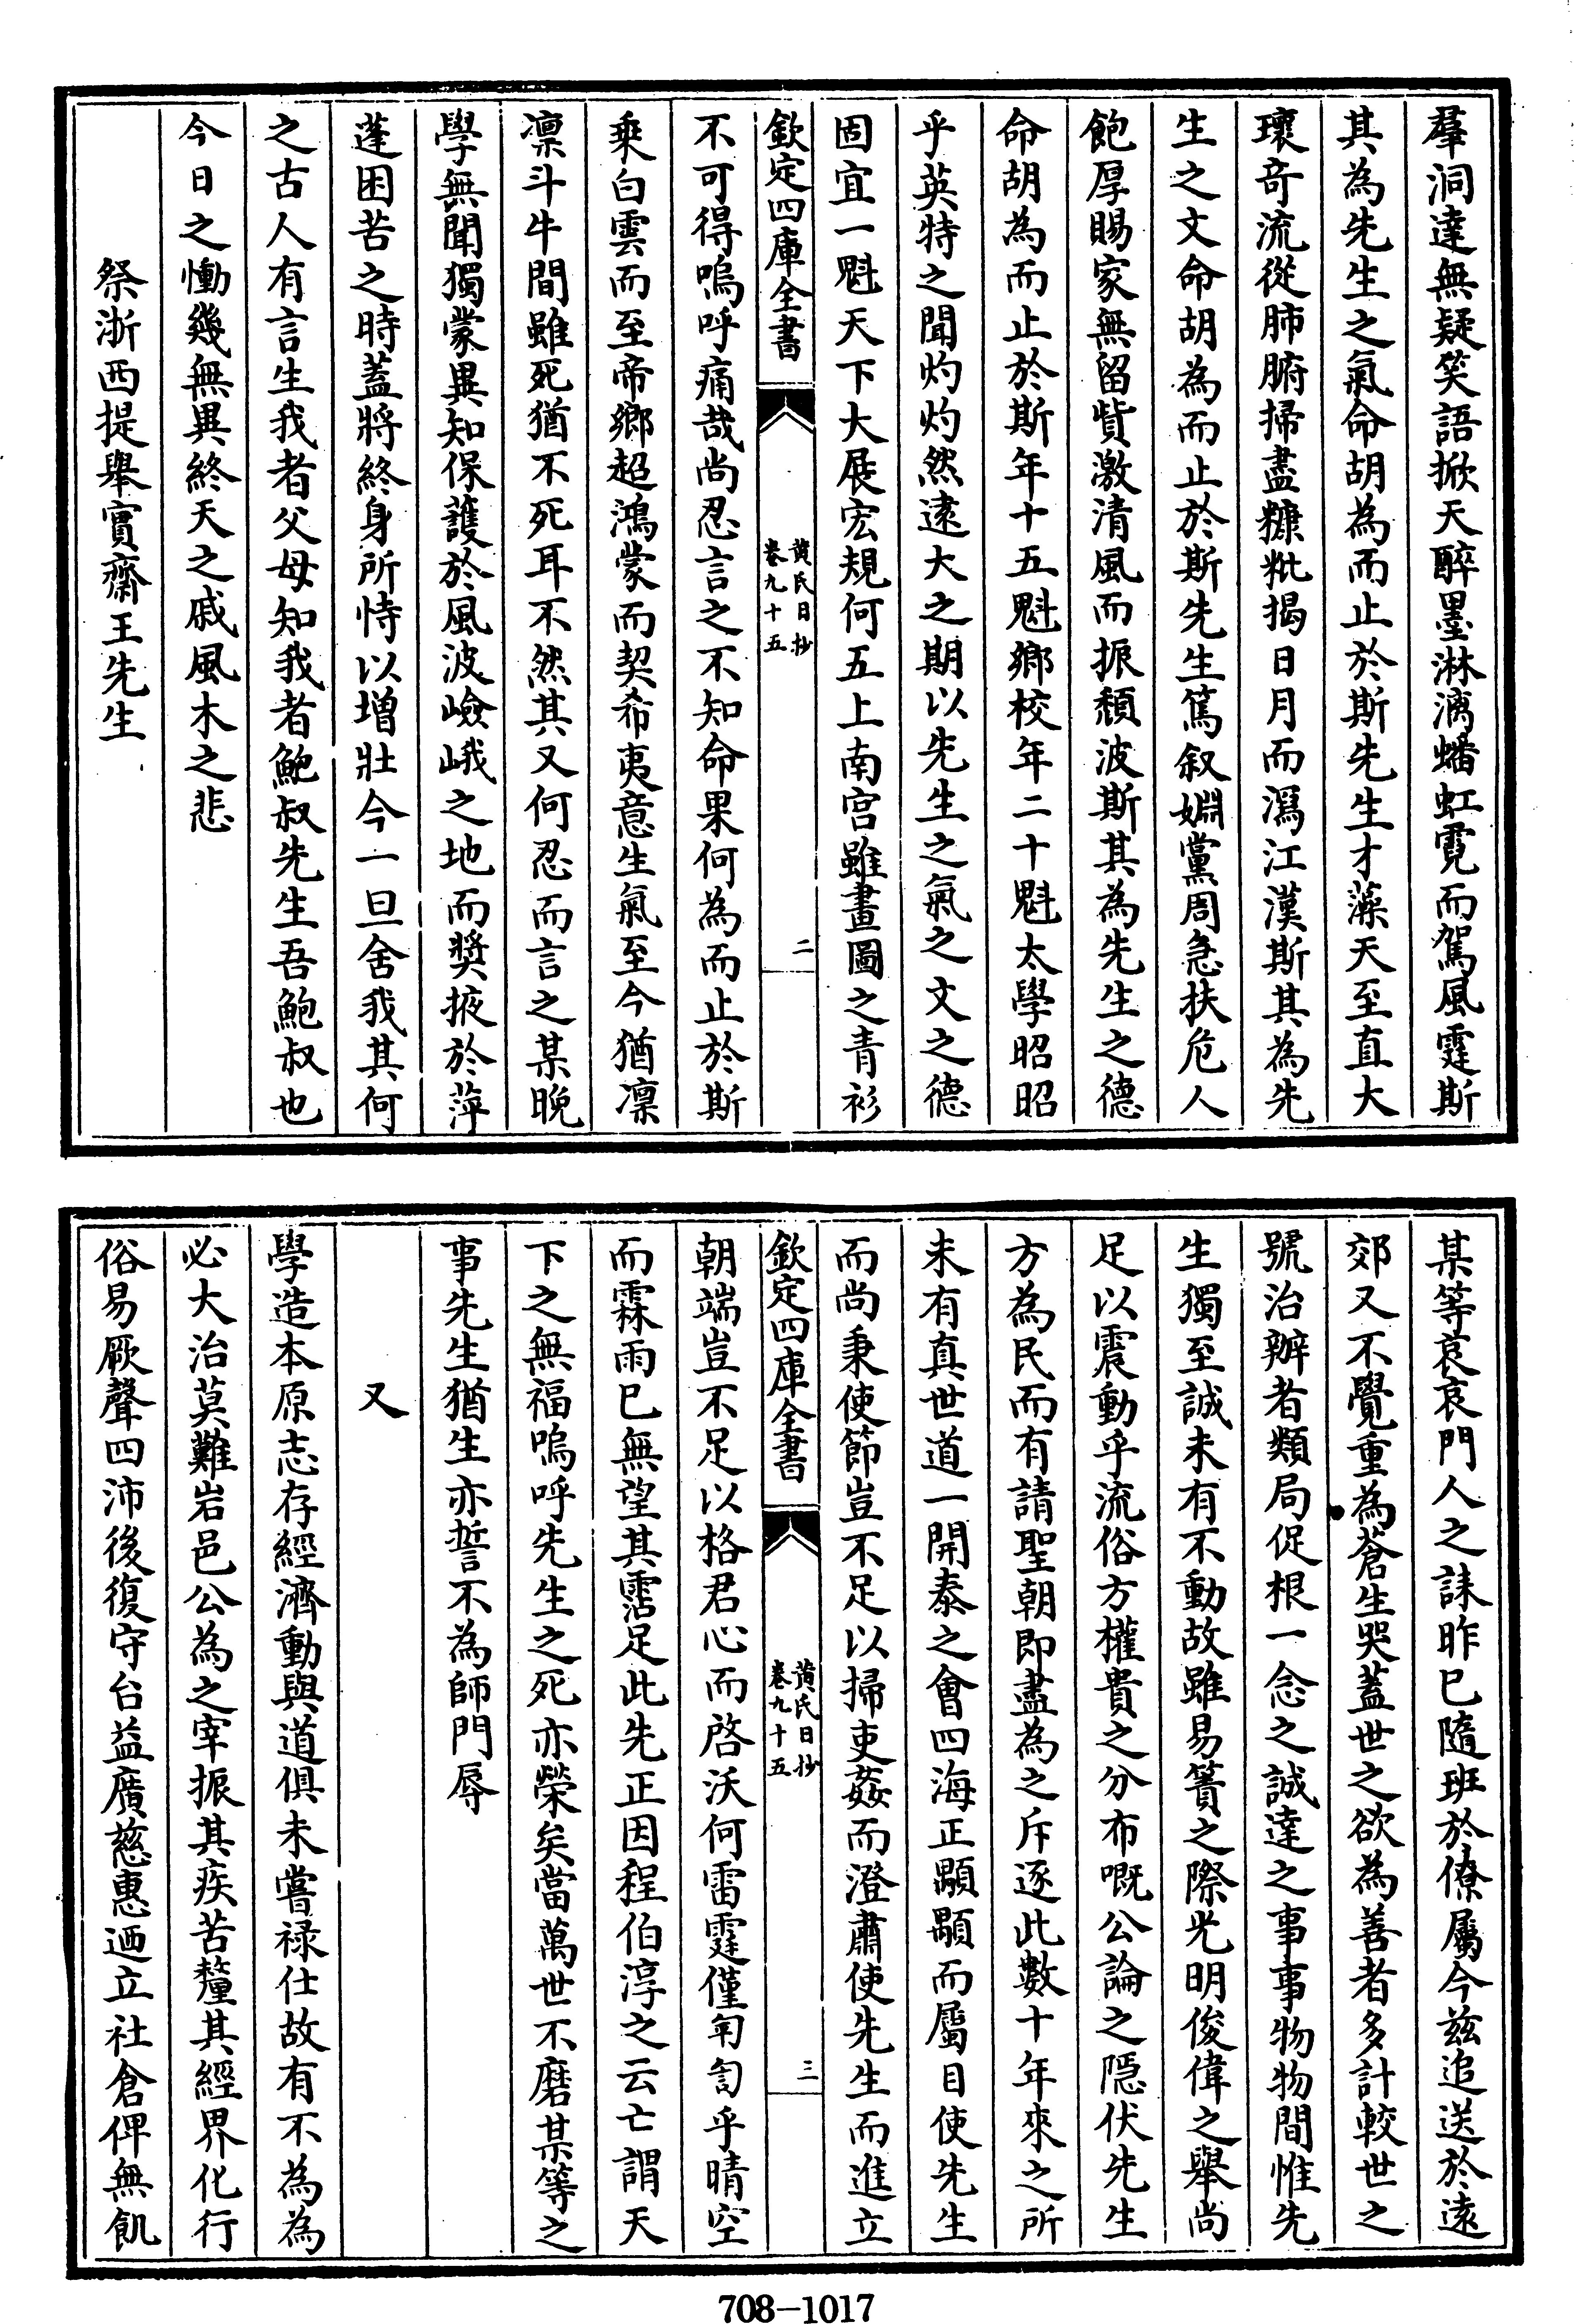 羣洞達無疑笑語掀天醉墨淋漓蟠虹霓而駕風霆斯
其為先生之氣命胡為而止於斯先生才藻天至直大
瓌竒流從肺腑掃盡糠粃揭日月而瀉江漢斯其為先
生之文命胡為而止於斯先生篤叙婣黨周急扶危人
飽厚賜家無留貲激清風而振頽波斯其為先生之德
命胡為而止於斯年十五魁鄉校年二十魁太學昭昭
乎英特之聞灼灼然逺大之期以先生之氣之文之德
固宜一魁天下大展宏規何五上南宫雖畫圖之青衫
欽定四庫全書
黄氏日抄
卷九十五
二
不可得嗚呼痛哉尚忍言之不知命果何為而止於斯
乘白雲而至帝鄉超鴻蒙而契希夷意生氣至今猶凛
凛斗牛間雖死猶不死耳不然其又何忍而言之某晚
學無聞獨蒙異知保護於風波嶮峨之地而奬掖於萍
蓬困苦之時蓋將終身所恃以增壯今一旦舍我其何
之古人有言生我者父母知我者鮑叔先生吾鮑叔也
今日之慟幾無異終天之戚風木之悲
祭浙西提舉實齋王先生
某等哀哀門人之誄昨已隨班於僚屬今兹追送於逺
郊又不覺重為蒼生哭蓋世之欲為善者多計較世之
號治辦者類局促根一念之誠達之事事物物間惟先
生獨至誠未有不動故雖易簀之際光明俊偉之舉尚
足以震動乎流俗方權貴之分布嘅公論之隠伏先生
方為民而有請聖朝即盡為之斥逐此數十年來之所
未有真世道一開泰之會四海正顒顒而屬目使先生
而尚秉使節豈不足以掃吏姦而澄肅使先生而進立
欽定四庫全書
黄氏日抄
卷九十五
三
朝端豈不足以格君心而啓沃何雷霆僅訇訇乎晴空
而霖雨已無望其霑足此先正因程伯淳之云亡謂天
下之無福嗚呼先生之死亦榮矣當萬世不磨某等之
事先生猶生亦誓不為師門辱
又
學造本原志存經濟動與道俱未嘗禄仕故有不為為
必大治莫難岩邑公為之宰振其疾苦釐其經界化行
俗易厥聲四沛後復守台益廣慈惠迺立社倉俾無飢
708-1017